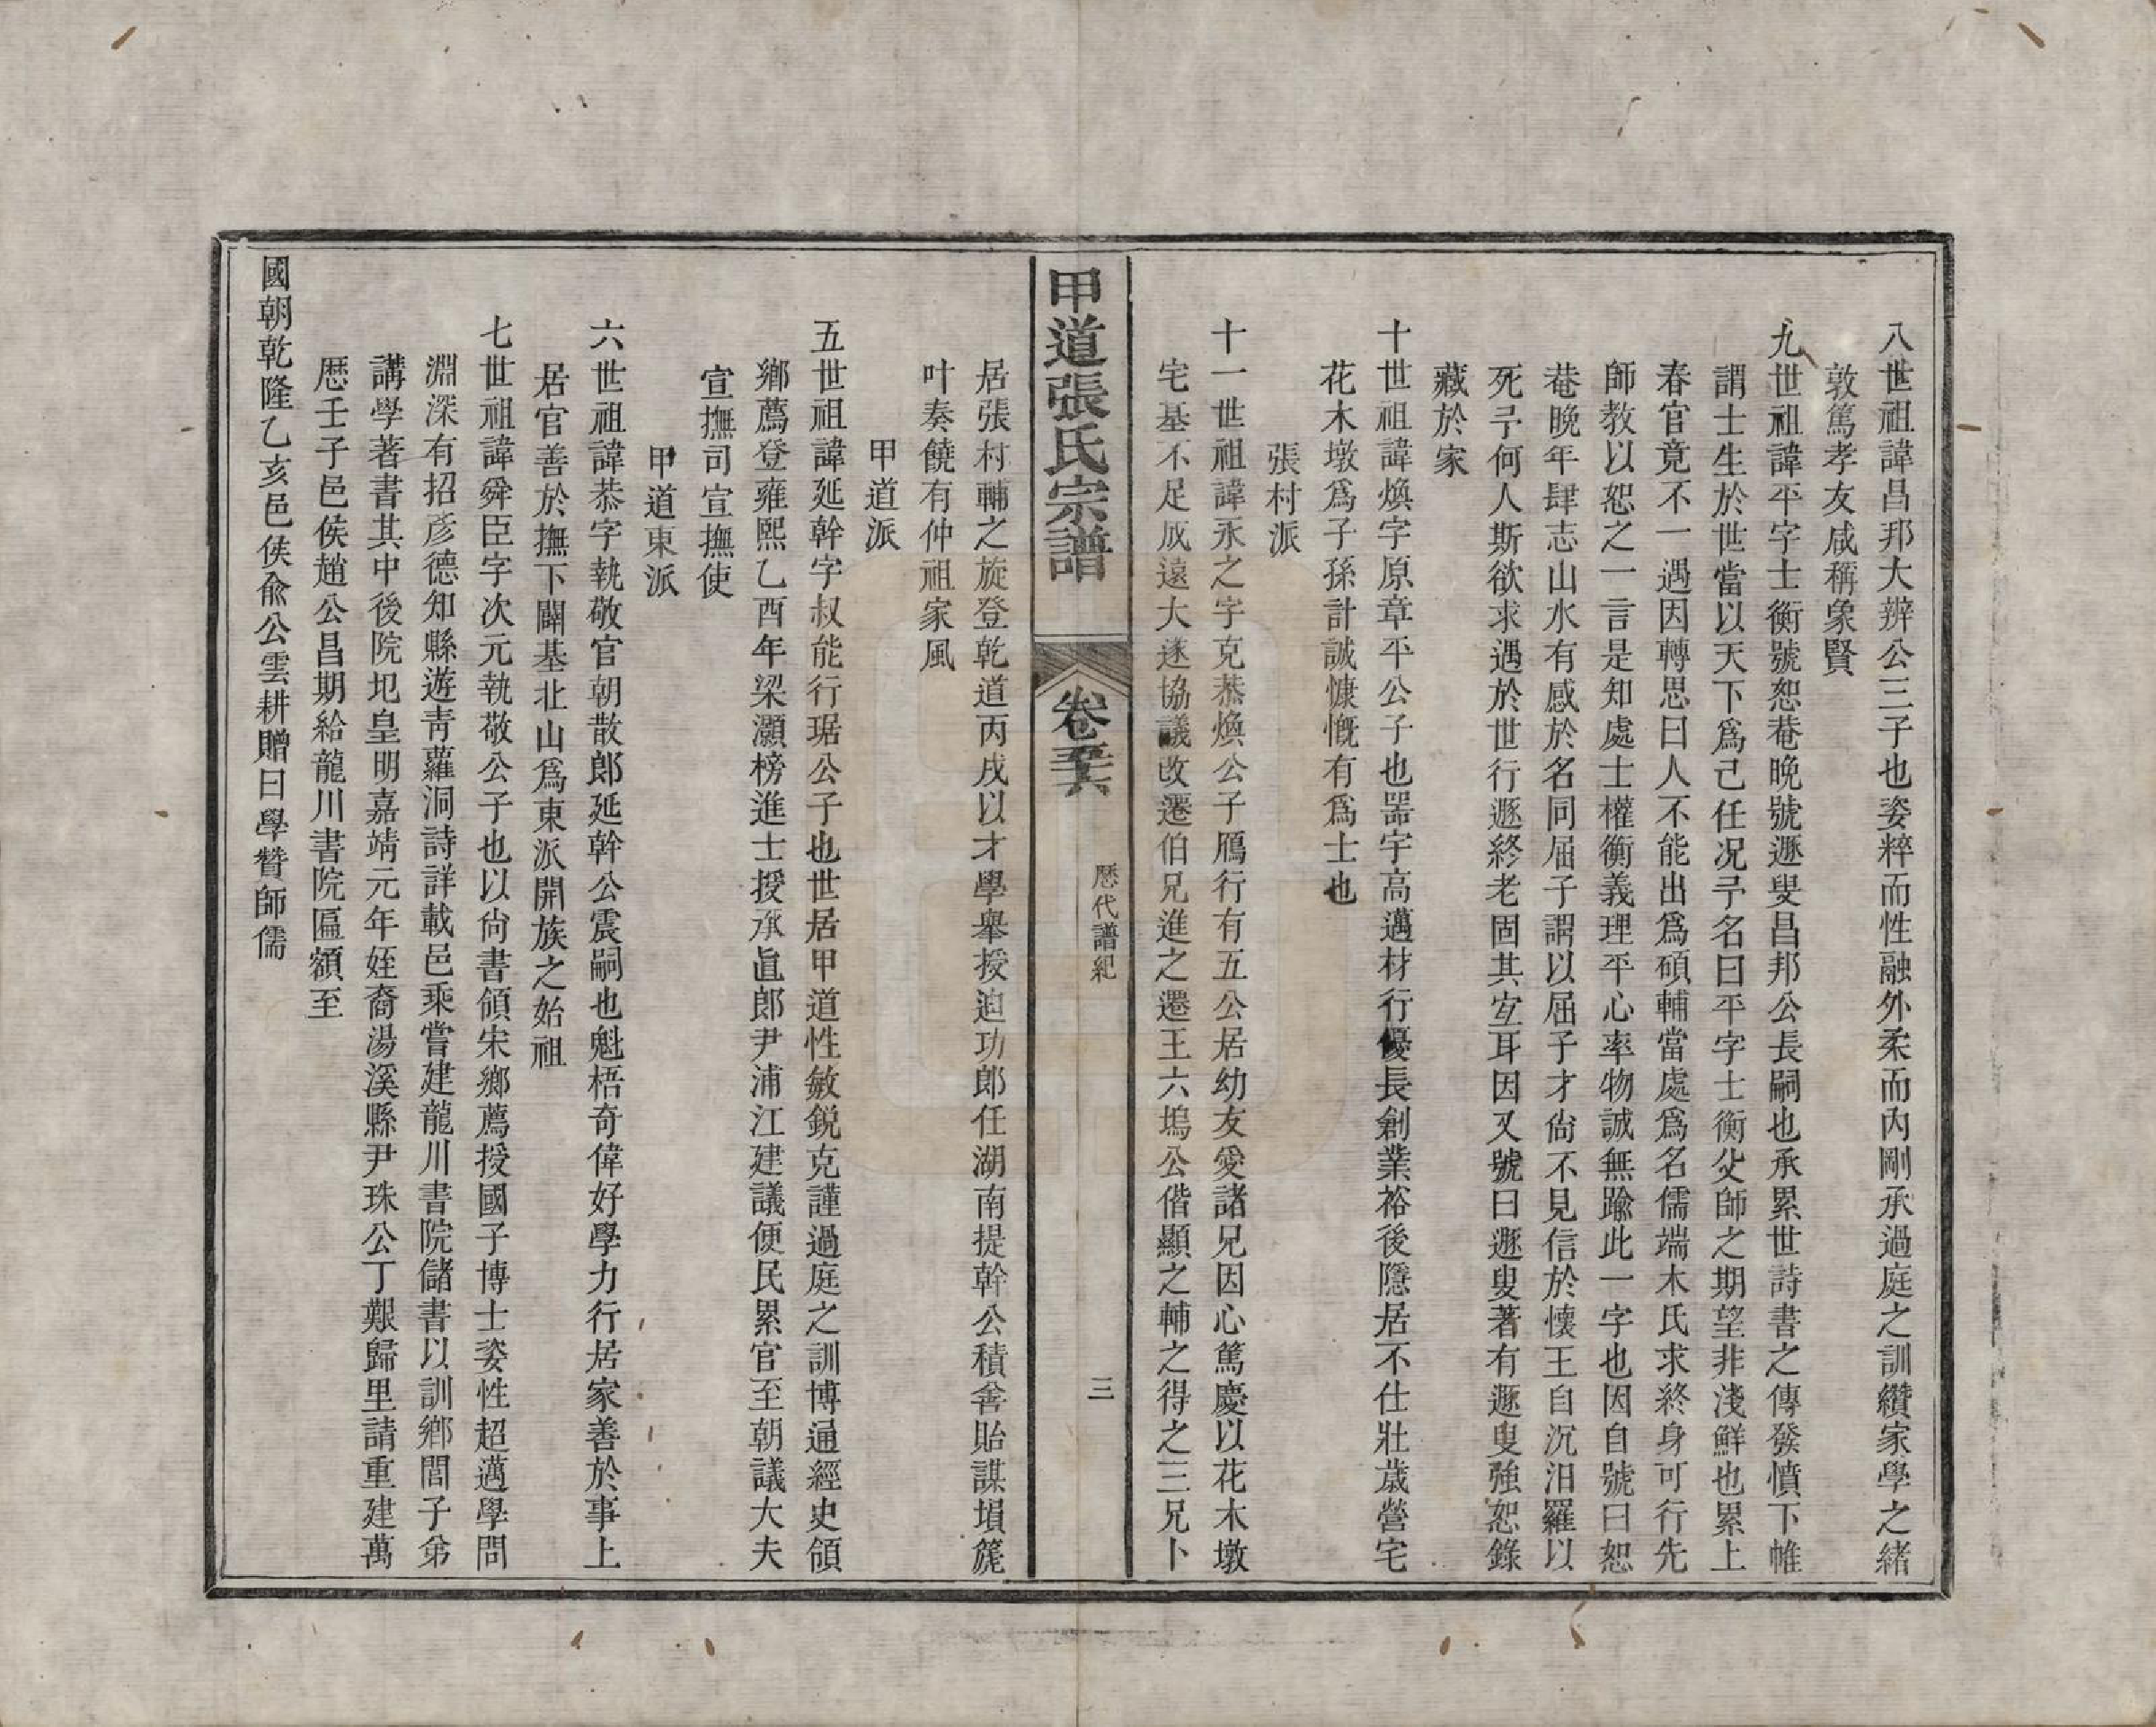 八世祖諱昌邦大辨公三子也姿粹而性融外柔而內剛承過庭之訓纘家學之緒
敦篤孝友咸稱象賢
九世祖諱平字士衡號恕菴晚號遯叟昌邦公長嗣也承累世詩書之傳發憤下帷
謂士生於世當以天下爲己任况予名曰平字士衡父師之期望非淺鮮也累上
春官竟不一遇因轉思曰人不能出爲碩輔當處爲名儒端木氏求終身可行先
師教以恕之一言是知處士權衡義理平心率物誠無踰此一字也因自號曰恕
菴晚年肆志山水有感於名同屈子謂以屈子才尙不見信於懷王自沉汨羅以
死予何人斯欲求遇於世行遯終老固其宜耳因又號曰遯叟著有遯叟強恕錄
藏於家
十世祖諱煥字原章平公子也噐宇高邁材行優長創業裕後隱居不仕壯歲營宅
花木墩爲子孫計誠慷慨有爲士也
張村派
十一世祖諱永之字克恭煥公子鴈行有五公居幼友愛諸兄因心篤慶以花木墩
宅基不足成遠大遂協議改遷伯兄進之遷王六塢公偕顯之輔之得之三兄卜
甲道張氏宗譜
卷五六
歷代譜紀
三
居張村輔之旋登乾道丙戌以才學舉授迪功郎任湖南提幹公積善貽謀塤篪
叶奏饒有仲祖家風
甲道派
五世祖諱延幹字叔能行琚公子也世居甲道性敏銳克謹過庭之訓博通經史領
鄉薦登雍熙乙酉年梁灝榜進士授承直郎尹浦江建議便民累官至朝議大夫
宣撫司宣撫使
甲道東派
六世祖諱恭字執敬官朝散郎延幹公震嗣也魁梧奇偉好學力行居家善於事上
居官善於撫下闢基北山爲東派開族之始祖
七世祖諱舜臣字次元執敬公子也以尙書領宋鄉薦授國子博士姿性超邁學問
淵深有招彥德知縣遊靑蘿洞詩詳載邑乘嘗建龍川書院儲書以訓鄉閭子弟
講學著書其中後院圯皇明嘉靖元年姪裔湯溪縣尹珠公丁艱歸里請重建萬
歷壬子邑侯趙公昌期給龍川書院匾額至
國朝乾隆乙亥邑侯兪公雲耕贈曰學贊師儒